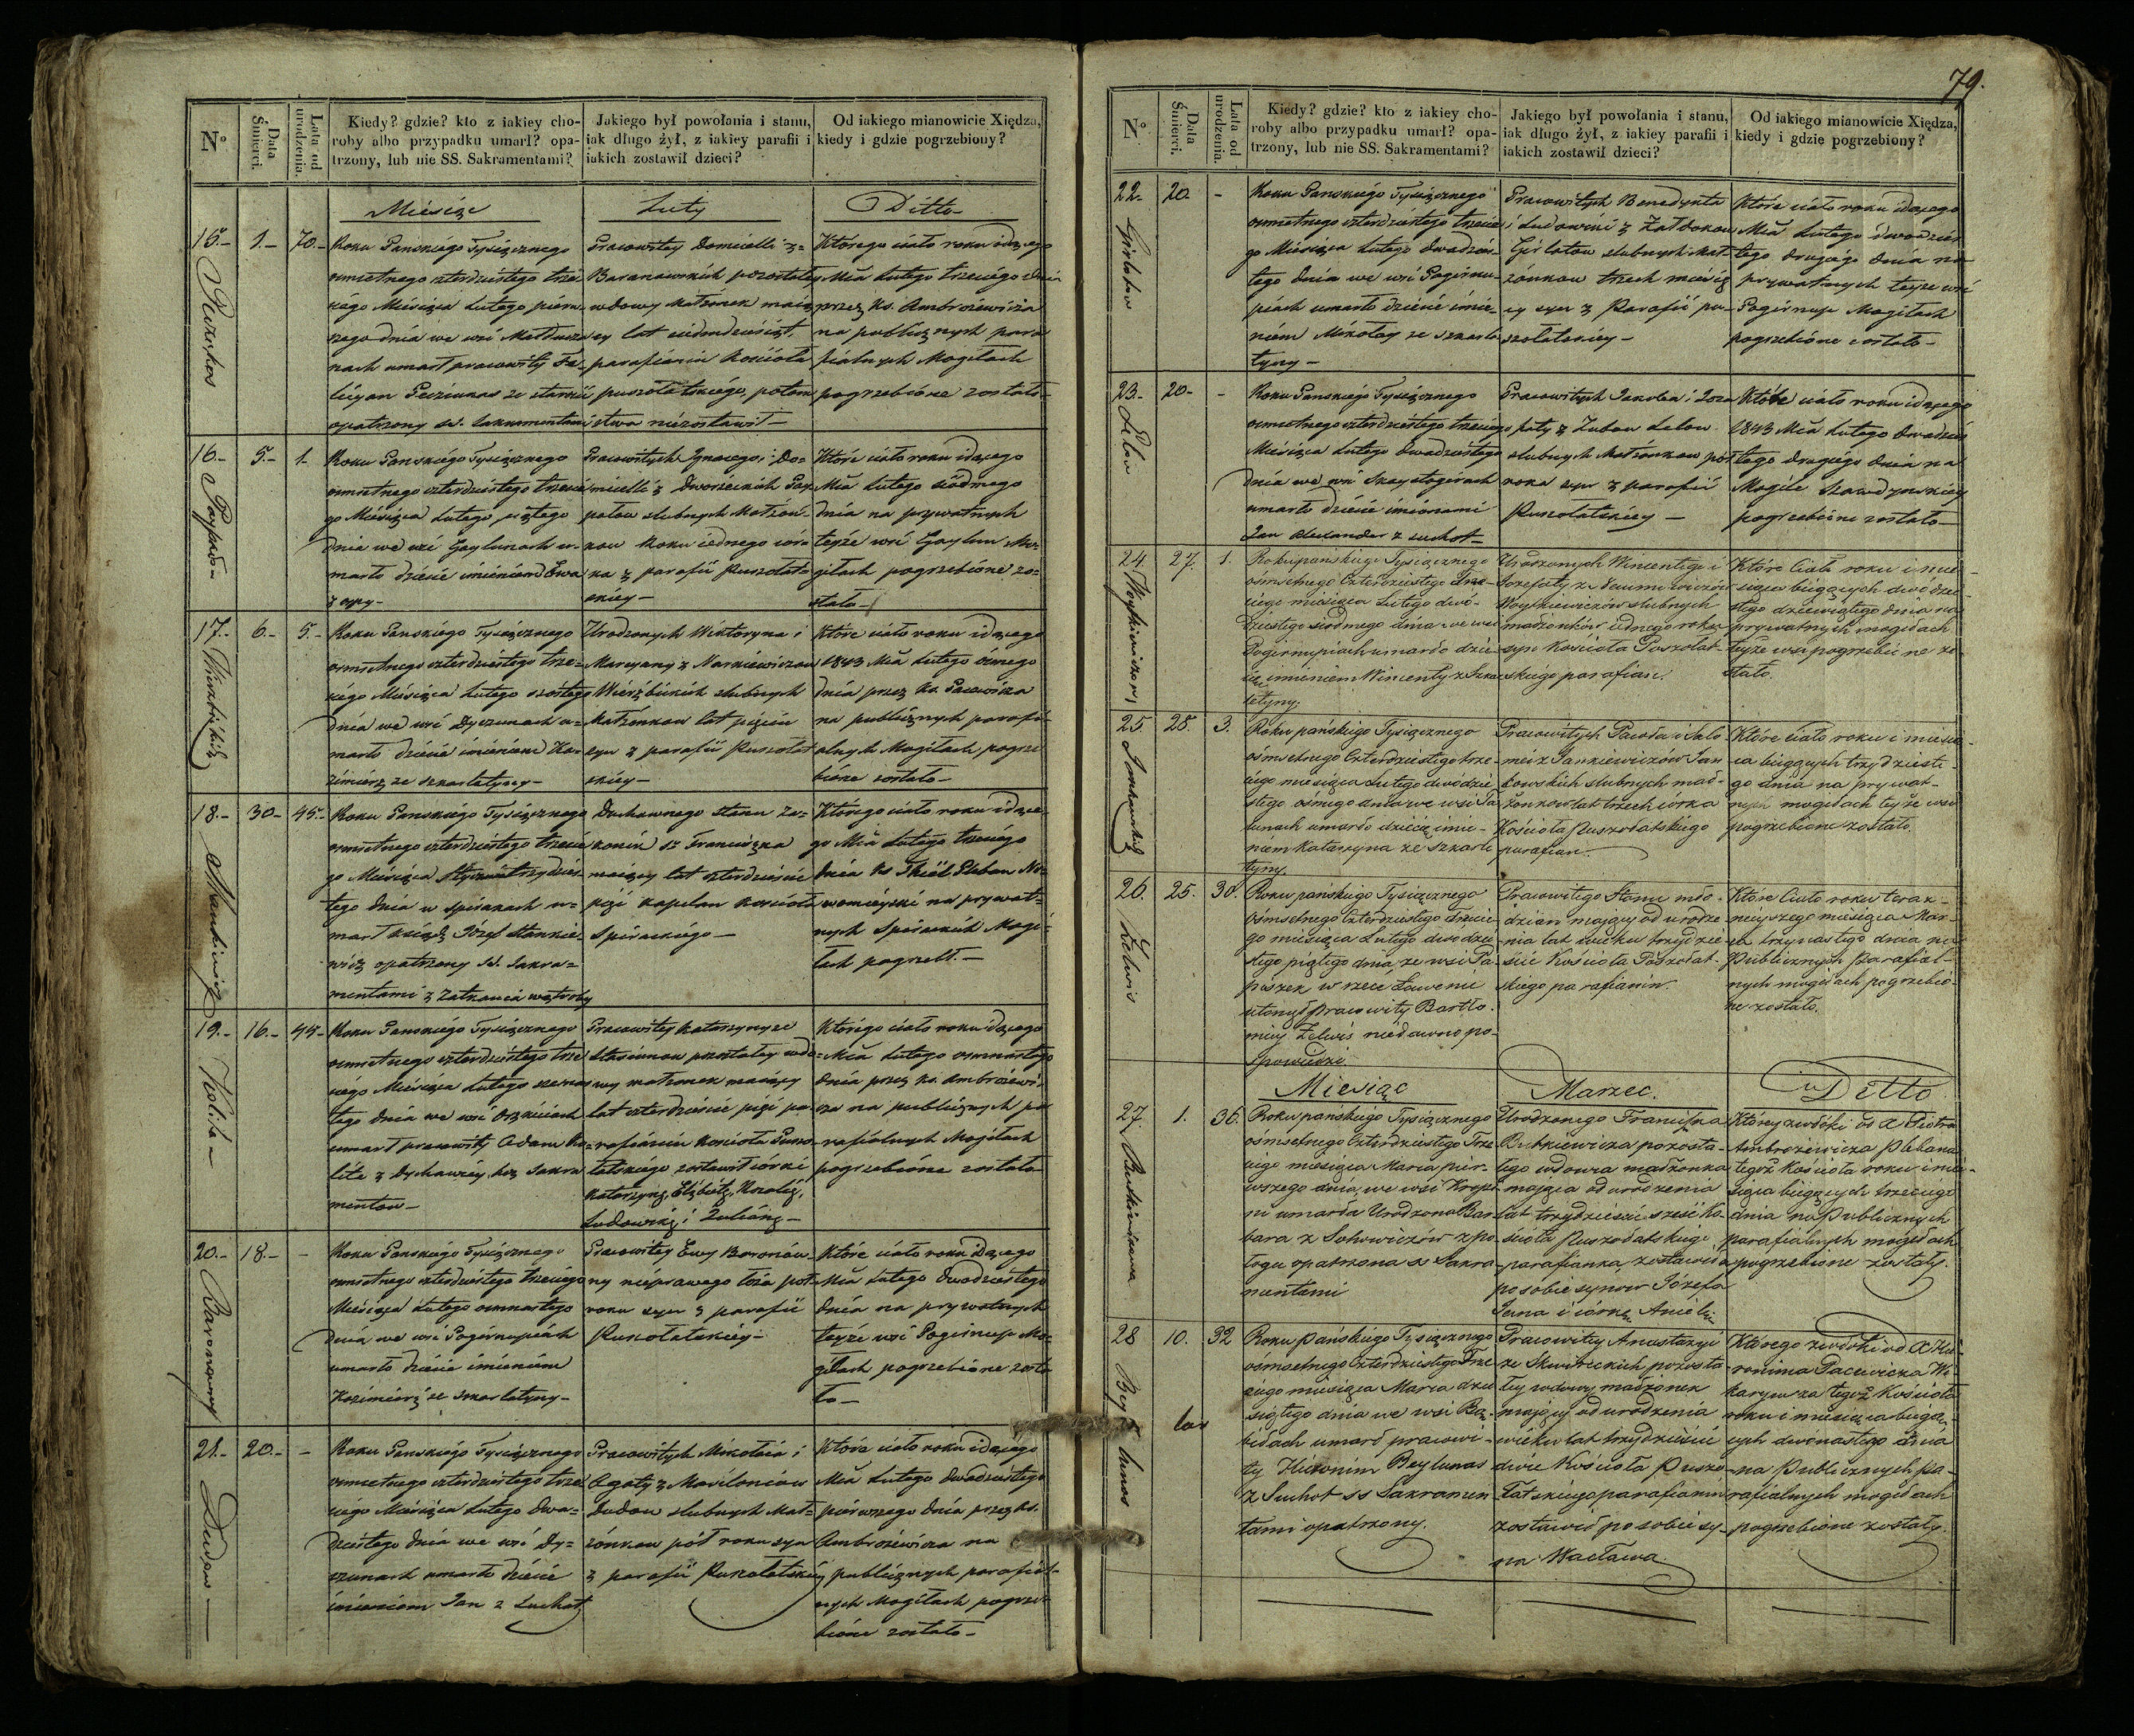 79.
No
Data Śmierci.
Lata od urodzenia.
Kiedy? gdzie? kto z iakiey cho-
roby albo przypadku umarł? opa-
trzony, lub nie SS. Sakramentami?
Jakiego był powołania i stanu,
iak długo żył, z iakiey parafii i
iakich zostawił dzieci?
Od iakiego mianowicie Xiędza,
kiedy i gdzie pogrzebiony?
Miesiąc
Luty
Ditto
15. 1. 70.
Roku Panskiégo Tysiącznego
osmsetnego czterdziestego trze-
ciégo Miesiąca Lutego pierw-
szego dnia we wsi
nach umarł pracowity Fe-
licyan ze starości
opatrzony ss. Sakramentami
Pracowitey Domicelli z
Baranowskich pozostałey
wdowy małżonek maią-
cy lat siedmdziesiąt,
parafianin Kościoła
puszołatskiego, potom-
stwa niezostawił
Którego ciało roku idącego
Mca Lutego trzeciégo dnia
przez Ks. Ambrozéwicza
na publicznych para-
fialnych Mogiłach
pogrzebióne zostało
16. 5. 1.
Roku Panskiégo Tysiącznego
osmsetnego czterdziéstego trzecie-
go Miesiąca Lutego piątego
dnia we wsi Gaylunach u-
marło dziécie imieniem Ewa
z ospy
Pracowitych Ignacego i Do-
micelli z Dworzeckich
ślubnych Małżon-
kow Roku iednego cór-
ka z parafii Puszołat-
skiéy
Któré ciało roku idącego
Mca Lutego siódmego
dnia na prywatnych
teyże wsi Gaylun Mo-
giłach pogrzebióne zo-
stało
17. 6. 5.
Roku Panskiégo Tysiącznego
osmsetnego czterdziéstego trze-
ciégo Miésiąca Lutégo szóstego
dnia we wsi Dyrzunach u-
marło dziécie imieniem Ka-
zimiérz ze szkarlatyny
Urodzonych Wiktoryna i
Maryany z Narkiewiczow
Wiérzbickich ślubnych
Małżónkow lat pięciu
syn z parafii Puszołat-
skiéy
Któré ciało roku idącego
1843 Mca Lutego ósmego
dnia przez Ks. Pacewicza
na publicznych parafi-
alnych Mogiłach pogrze-
bióne zostało
18. 30. 45.
Stankiewicz
Roku Panskiégo Tysiącznego
osmsetnego czterdziéstego trzecie-
go Miesiąca Stycznia trzydzies-
tego dnia w Spirakach u-
marł ksiądz Józef Stankie-
wicz opatrzony ss. Sakra-
mentami z Zatkania wątroby
Duchownego stanu Za-
konu S. Franciszka
maiący lat czterdzieście
pięć kapelan kościoła
Spirackiégo
Którégo ciało roku idące-
go Mca Lutego trzeciego
dnia Ks. Pleban No-
womieyski na prywat-
nych Spirackich Mogi-
łach pogrzebł.
19. 16. 45.
Kolita
Roku Panskiégo Tysiącznego
osmsetnego czterdziéstego trze-
ciégo Miésiąca Lutego szesnas-
tego dnia we wsi
umarł pracowity Adam Ko-
lita z dychawicy bez Sakra-
mentow
Pracowitey Katarzyny ze
Stasiunow pozostałey wdo-
wy małżonek maiący
lat czterdzieście pięć pa-
rafiánin Kościoła Puszo-
łatskiégo zostawił córki
Katarzynę, Elżbiétę, Rozalię,
Ludowikę i Juliánę
Którégo ciało roku idącego
Mca Lutego osmnastego
dnia przez Ks. Ambrozéwi-
cza na publicznych pa-
rafiálnych Mogiłach
pogrzebióne zostało
20. 18.
Roku Panskiégo Tysiącznego
osmsetnego czterdziéstego trzeciégo
Miesiąca Lutego osmnastego
dnia we wsi Pogirnupiach
umarło dziécie imieniem
Kazimiérz ze szkarlatyny
Pracowitey Ewy Baronów-
ny nieprawego łoża pół
roku syn z parafii
Puszołatskiéy
Któré ciało roku idącego
Mca Lutego dwudziéstego
dnia na prywatnych
teyże wsi Pogirnup Mo-
giłach pogrzebióne zosta-
ło
21. 20.
Dudow
Roku Panskiégo Tysiącznego
osmsetnego czterdziéstego trze-
ciégo Miesiąca Lutego dwu-
dziéstego dnia we wsi Dy-
rzunach umarło dziécie
imieniem Jan z Suchot
Pracowitych Mikołaia i
Agaty z
Dudow ślubnych Mał-
żónkow pół roku syn
z parafii Puszołatskiéy
Któré ciało roku idącégo
Mca Lutego dwudziéstego
pierwszego dnia przez Ks.
Ambrozéwicza na
publicznych parafiál-
nych Mogiłach pogrze-
bióne zostało
No
Data Śmierci.
Lata od urodzenia.
Kiedy? gdzie? kto z iakiey cho-
roby albo przypadku umarł? opa-
trzony, lub nie SS. Sakramentami?
Jakiego był powołania i stanu,
iak długo żył, z iakiey parafii i
iakich zostawił dzieci?
Od iakiego mianowicie Xiędza,
kiedy i gdzie pogrzebiony?
22. 20. -
Roku Panskiégo Tysiącznego
osmsetnego czterdziestego trzecie-
go Miesiąca Lutego dwudzies-
tego dnia we wsi Pogirnu-
piach umarło dziécié imie-
niem Mikołay ze szkarla-
tyny
Pracowitych Benedykta
i Ludowiki z
ślubnych Mał-
żónkow trzech miesię-
cy syn z Parafii pu-
szołatskiéy
Któré ciało roku idącego
Mca Lutego dwudzies-
tego drugiégo dnia na
prywatnych teyże wsi
Pogirnup Mogiłach
pogrzebióne zostało
23. 20. -
Roku Panskiégo Tysiącznego
osmsetnego czterdziéstego trzeciégo
Miésiąca Lutego dwudziéstego
dnia we wsi
umarło dziécié imionami
Jan Alexander z suchot
Pracowitych Jakuba i Joza-
faty z Zubow
ślubnych Małżónkow pół
roku syn z parafii
Puszołatskiéy
Któré ciało roku idącégo
1843 Mca Lutego dwudzies-
tego drugiégo dnia na
Mogile
pogrzebióne zostało
24. 27. 1.
Roku pańskiego Tysiącznego
ośmsetnego Czterdziestego Trze-
ciego miesiąca Lutego dwó-
dziestego siódmego dnia we wsi
Pogirnupiach umarło dzie-
cie imieniem Wincenty z Szkar-
letyny.
Urodzonych Wincentego i
Jozefaty z
Woytkiewiczów ślubnych
małżonków iednego roku
syn Kościoła Poszołat-
skiego parafian.
Które Ciało roku i mie-
siąca biegących dwódzie-
stego dziewiątego dnia na
prywatnych mogiłach
teyże wsi pogrzebione zo-
stało.
25. 28. 3.
Jankowskich
Roku pańskiego Tysiącznego
ośmsetnego Czterdziestego trze-
ciego miesiąca Lutego dwódzie-
stego ósmego dnia we wsi
umarło dziécię imie-
niem Katarzyna ze szkarla-
tyny
Pracowitych Pawła i Salo-
mei z Jankiewiczów Jan-
kowskich ślubnych mał-
żonków lat trzech córka
Kościoła Puszołatskiego
parafian.
Które Ciało roku i miesią-
ca biegących trzydzieste-
go dnia na prywat-
nych mogiłach teyże wsi
pogrzebione zostało.
26. 25. 30.
Żelwis
Roku pańskiego Tysiącznego
ośmsetnego Czterdziestego Trzecie-
go miesiąca Lutego dwódzie-
stego piątego dnia, ze wsi
w rzece Ławenie
utonął pracowity Bartło-
miey Żelwis niedawno po
spowiedzi
Pracowitego Stanu mło-
dzian mający od urodze-
nia lat wieku trzydzie-
ście Kościoła Poszołat-
skiego parafianin.
Które Ciało roku teraz-
nieyszego miesiąca Mar-
ca trzynastego dnia na
Publicznych parafial-
nych mogiłach pogrzebio-
ne zostało.
Miesiąc
Marzec.
Ditto
27. 1. 36.
Butkiewiczowa
Roku pańskiego Tysiącznego
ośmsetnego Czterdziestego Trze-
ciego miesiąca Marca pier-
wszego dnia, we wsi
umarła Urodzona Bar-
bara z z po-
łogu opatrzona ss Sakra-
mentami
Urodzonego Franciszka
Butkiewicza pozosta-
łego wdowca małżonka
mająca od urodzenia
lat trzydzieści sześć Ko-
ścioła Puszołatskiego
parafianka, zostawiła
po sobie synów Józefa
Jana i córkę Anielę.
Którey zwłóki od X Piotra
Ambroziewicza Plebana
tegoż Kościoła roku i mie-
siąca biegących trzeciego
dnia na Publicznych
parafialnych mogiłach
pogrzebione zostały.
28 10. 32
Beylunas
Roku Pańskiego Tysiącznego
ośmsetnego Czterdziestego Trze-
ciego miesiąca Marca dzie-
siątego dnia we wsi
umarł pracowi-
ty Hieronim Beylunas
z Suchot ss Sakramen-
tami opatrzony.
Pracowitey Anastazyi
ze pozosta-
łey wdowy małżonek
mający od urodzenia
wieku lat trzydzieście
dwie Kościoła Puszo-
łatskiego parafianin
zostawił po sobie sy-
na Wacława.
Którego zwłóki od X Hie-
ronima Pacewicza Wi-
karyusza tegoż Kościoła
roku i miesiąca biegą-
cych dwónastego dnia
na Publicznych pa-
rafialnych mogiłach
pogrzebione zostały.